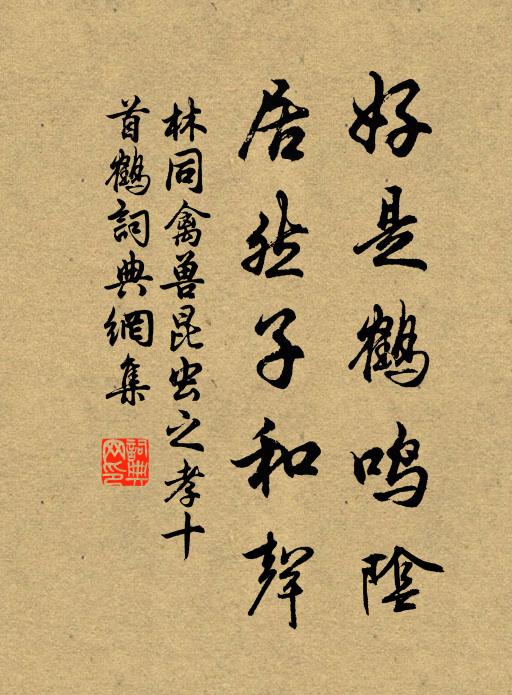 好是鹤鸣阴
居然子和声
林同禽兽昆虫之孝十
首鹤词典網集
詞典
网印